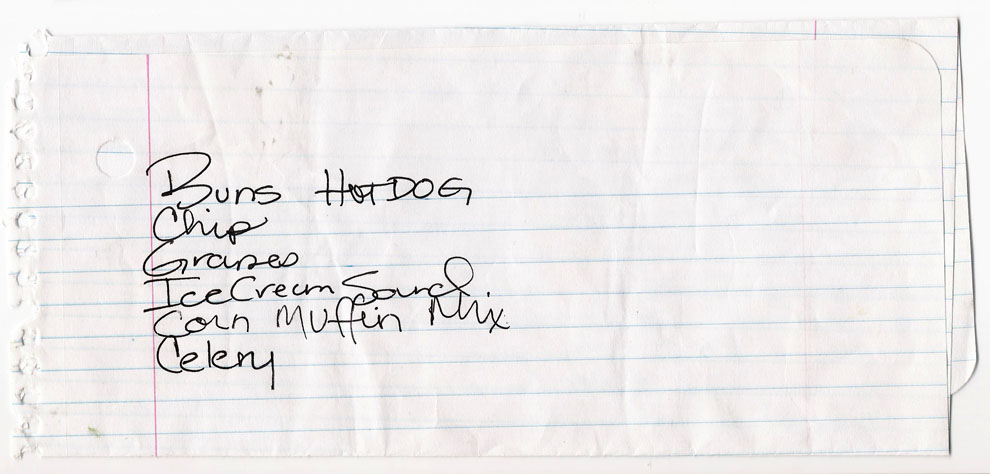 Buns HOTDOG
Chip
Grapes
Ice Cream
Corn Muffin Mix
Celery